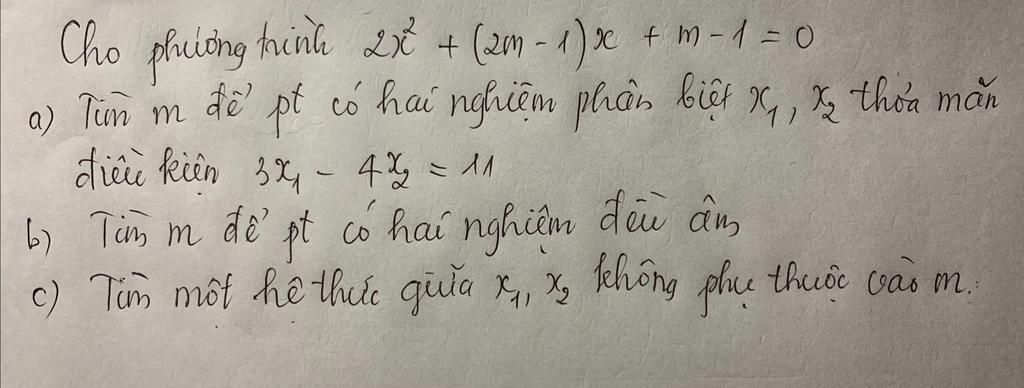 Cho phương trình 2x² + (2m - 1)x + m - 1 = 0
a) Tìm m để pt có hai nghiệm phân biệt x₁, x₂ thỏa mãn
điều kiện 3x₁ - 4x₂ = 11
b) Tìm m để pt có hai nghiệm đều âm
c) Tìm một hệ thức giữa x₁, x₂ không phụ thuộc vào m.